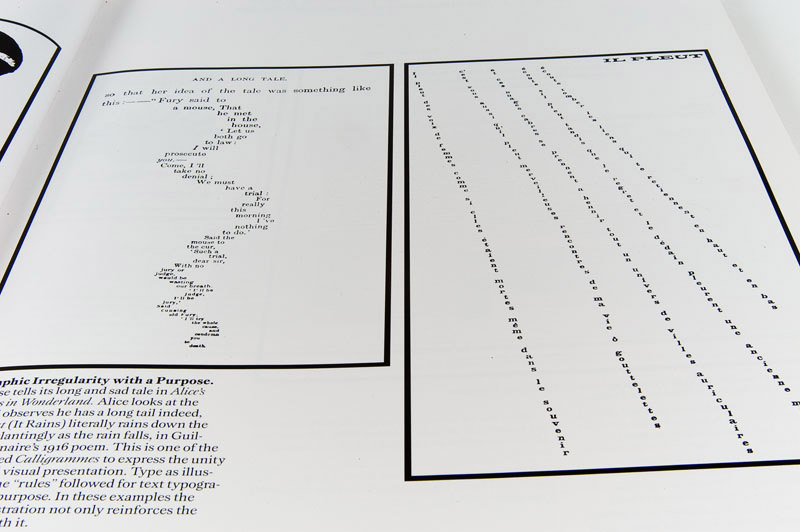 AND A LONG TALE.
so that her idea of the tale was something like
this:——"Fury said to
a mouse, That
he met
in the
house,
'Let us
both go
to law:
I will
prosecute
you.—
Come, I'll
take no
denial;
We must
have a
trial:
For
really
this
morning
I've
nothing
to do.'
Said the
mouse to
the cur,
'Such a
trial,
dear sir,
With no
jury or
judge,
would be
wasting
our breath.'
'I'll be
judge,
I'll be
jury,'
Said
cunning
old Fury;
'I'll try
the whole
cause,
and
condemn
you
to
death.'
IL PLEUT
il pleut des voix de femmes comme si elles étaient mortes même dans le souvenir
c'est vous aussi qu'il pleut merveilleuses rencontres de ma vie ô gouttelettes
et ces nuages cabrés se prennent à hennir tout un univers de villes auriculaires
écoute s'il pleut tandis que le regret et le dédain pleurent une ancienne m
écoute tomber les liens qui te retiennent en haut et en bas
phic Irregularity with a Purpose.
se tells its long and sad tale in Alice's
s in Wonderland. Alice looks at the
observes he has a long tail indeed,
t (It Rains) literally rains down the
lantingly as the rain falls, in Guil-
naire's 1916 poem. This is one of the
ed Calligrammes to express the unity
visual presentation. Type as illus-
e "rules" followed for text typogra-
purpose. In these examples the
stration not only reinforces the
th it.